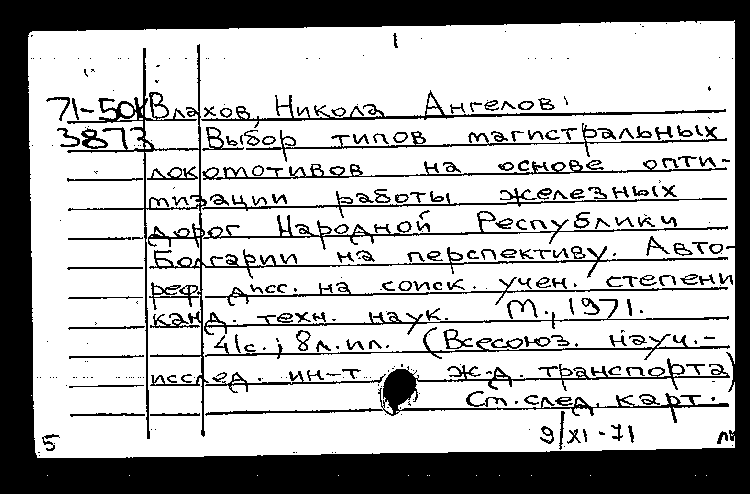 1
71-50k Влахов, Никола Ангелов.
3873 Выбор типов магистральных
локомотивов на основе опти-
мизации работы железных
дорог Народной Республики
Болгарии на перспективу. Авто-
реф. дисс. на соиск. учен. степени
канд. техн. наук. М., 1971.
41с.; 8л.ил. (Всесоюз. науч.-
исслед. ин-т ж.-д. транспорта)
См. след. карт.
5 9/XI-71